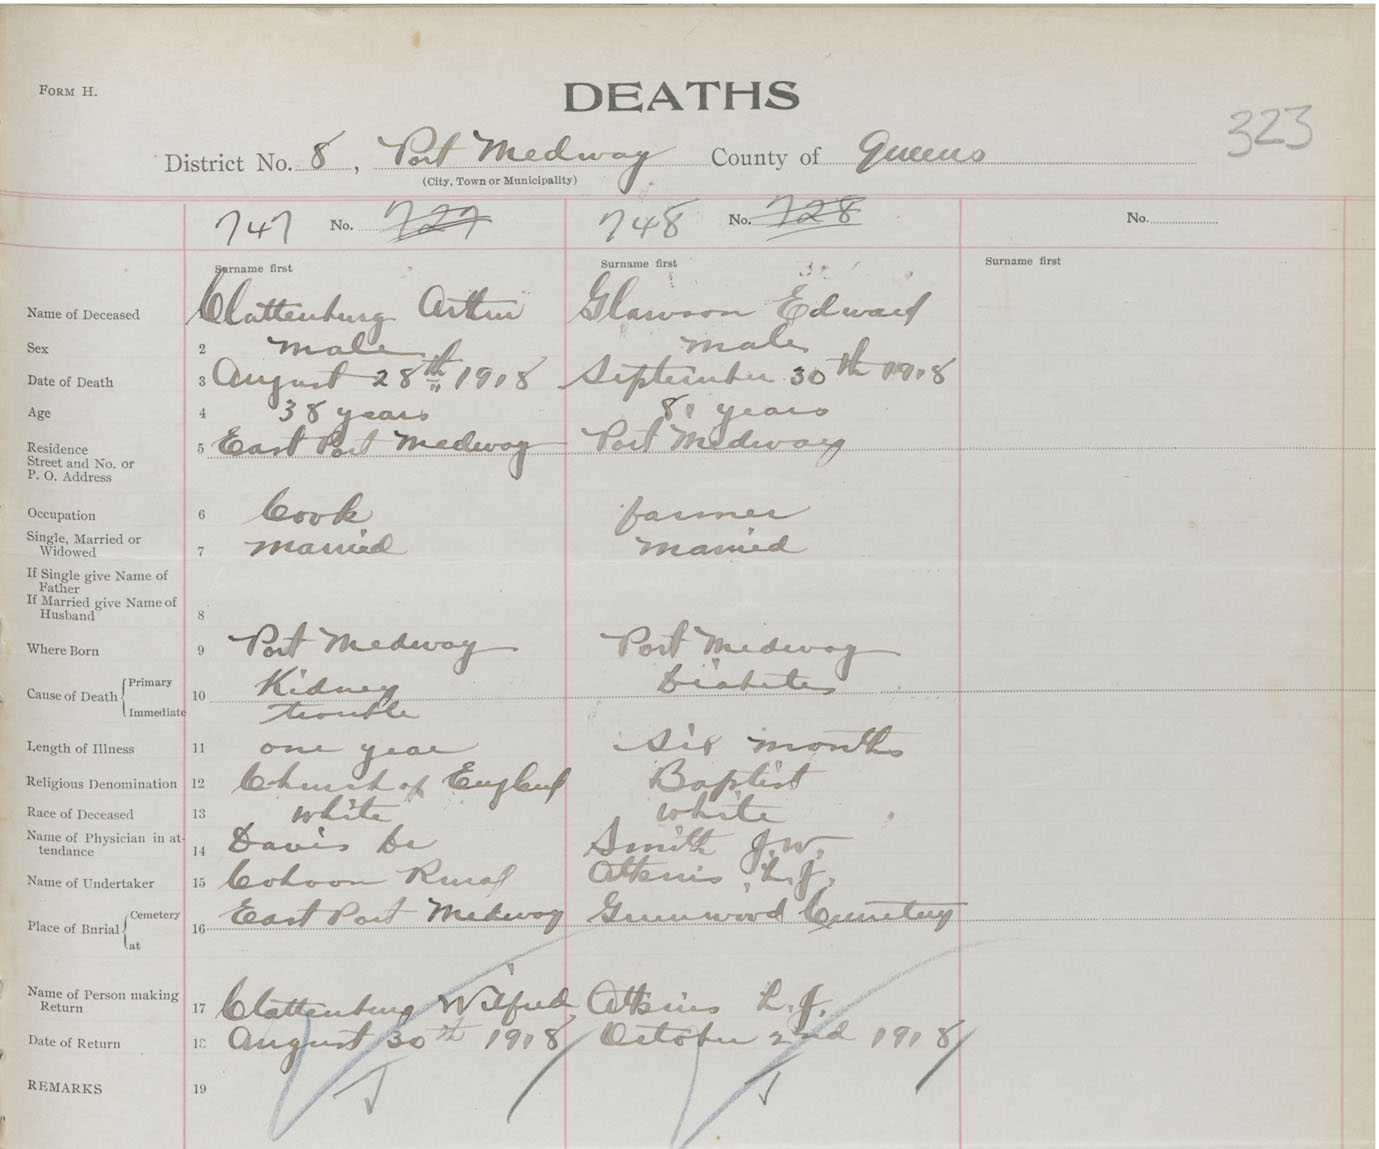 FORM H.
DEATHS
323
District No. 8, Port Medway County of Queens
(City, Town or Municipality)
747 No. 727 748 No. 728 No.
Surname first Surname first Surname first
Name of Deceased Clattenburg Arthur Slawson Edward
Sex 2 male male
Date of Death 3 August 28th 1918 September 30th 1918
Age 4 38 years 81 years
Residence 5 East Port Medway Port Medway
Street and No. or
P. O. Address
Occupation 6 Cook farmer
Single, Married or
Widowed 7 married married
If Single give Name of
Father
If Married give Name of
Husband 8
Where Born 9 Port Medway Port Medway
Cause of Death Primary 10 Kidney Diabetes
Immediate trouble
Length of Illness 11 one year six months
Religious Denomination 12 Church of England Baptist
Race of Deceased 13 white white
Name of Physician in at-
tendance 14 Davis Dr Smith J.W.
Name of Undertaker 15 Cohoon Rural Atkins L.J.
Place of Burial Cemetery 16 East Port Medway Greenwood Cemetery
at
Name of Person making
Return 17 Clattenburg Wilfred Atkins L.J.
Date of Return 18 August 30th 1918 October 2nd 1918
REMARKS 19